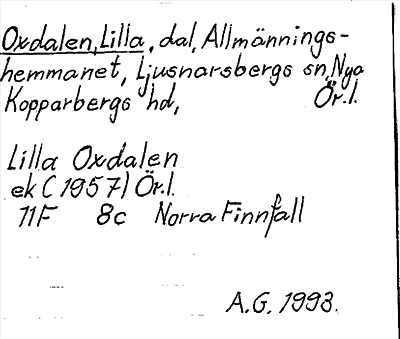 Oxdalen, Lilla, dal, Allmännings-
hemmanet, Ljusnarsbergs sn, Nya
Kopparbergs hd, Ör.l.
Lilla Oxdalen
ek (1957) Ör.l.
11F 8c Norra Finnfall
A.G. 1993.